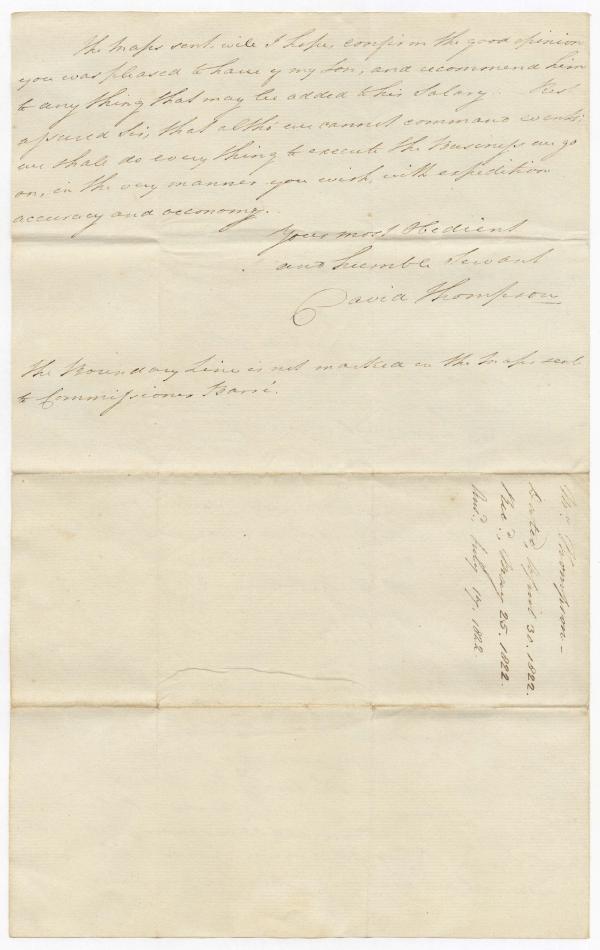 The Maps sent, will I hope, confirm the good opinion
you was pleased to have of my Son, and recommend him
to any thing that may be added to his Salary. Rest
assured Sir, that altho' we cannot command events;
we shall do every thing to execute the Business we go
on, in the very manner you wish, with expedition
accuracy and oeconomy.
Your most Obedient
and humble Servant
David Thompson
The Boundary Line is not marked on the Maps sent
to Commissioner Barré.
Mr. Thompson -
dated, April 30. 1822.
Rec'd, May 25. 1822.
Ans'd. July 17. 1822.